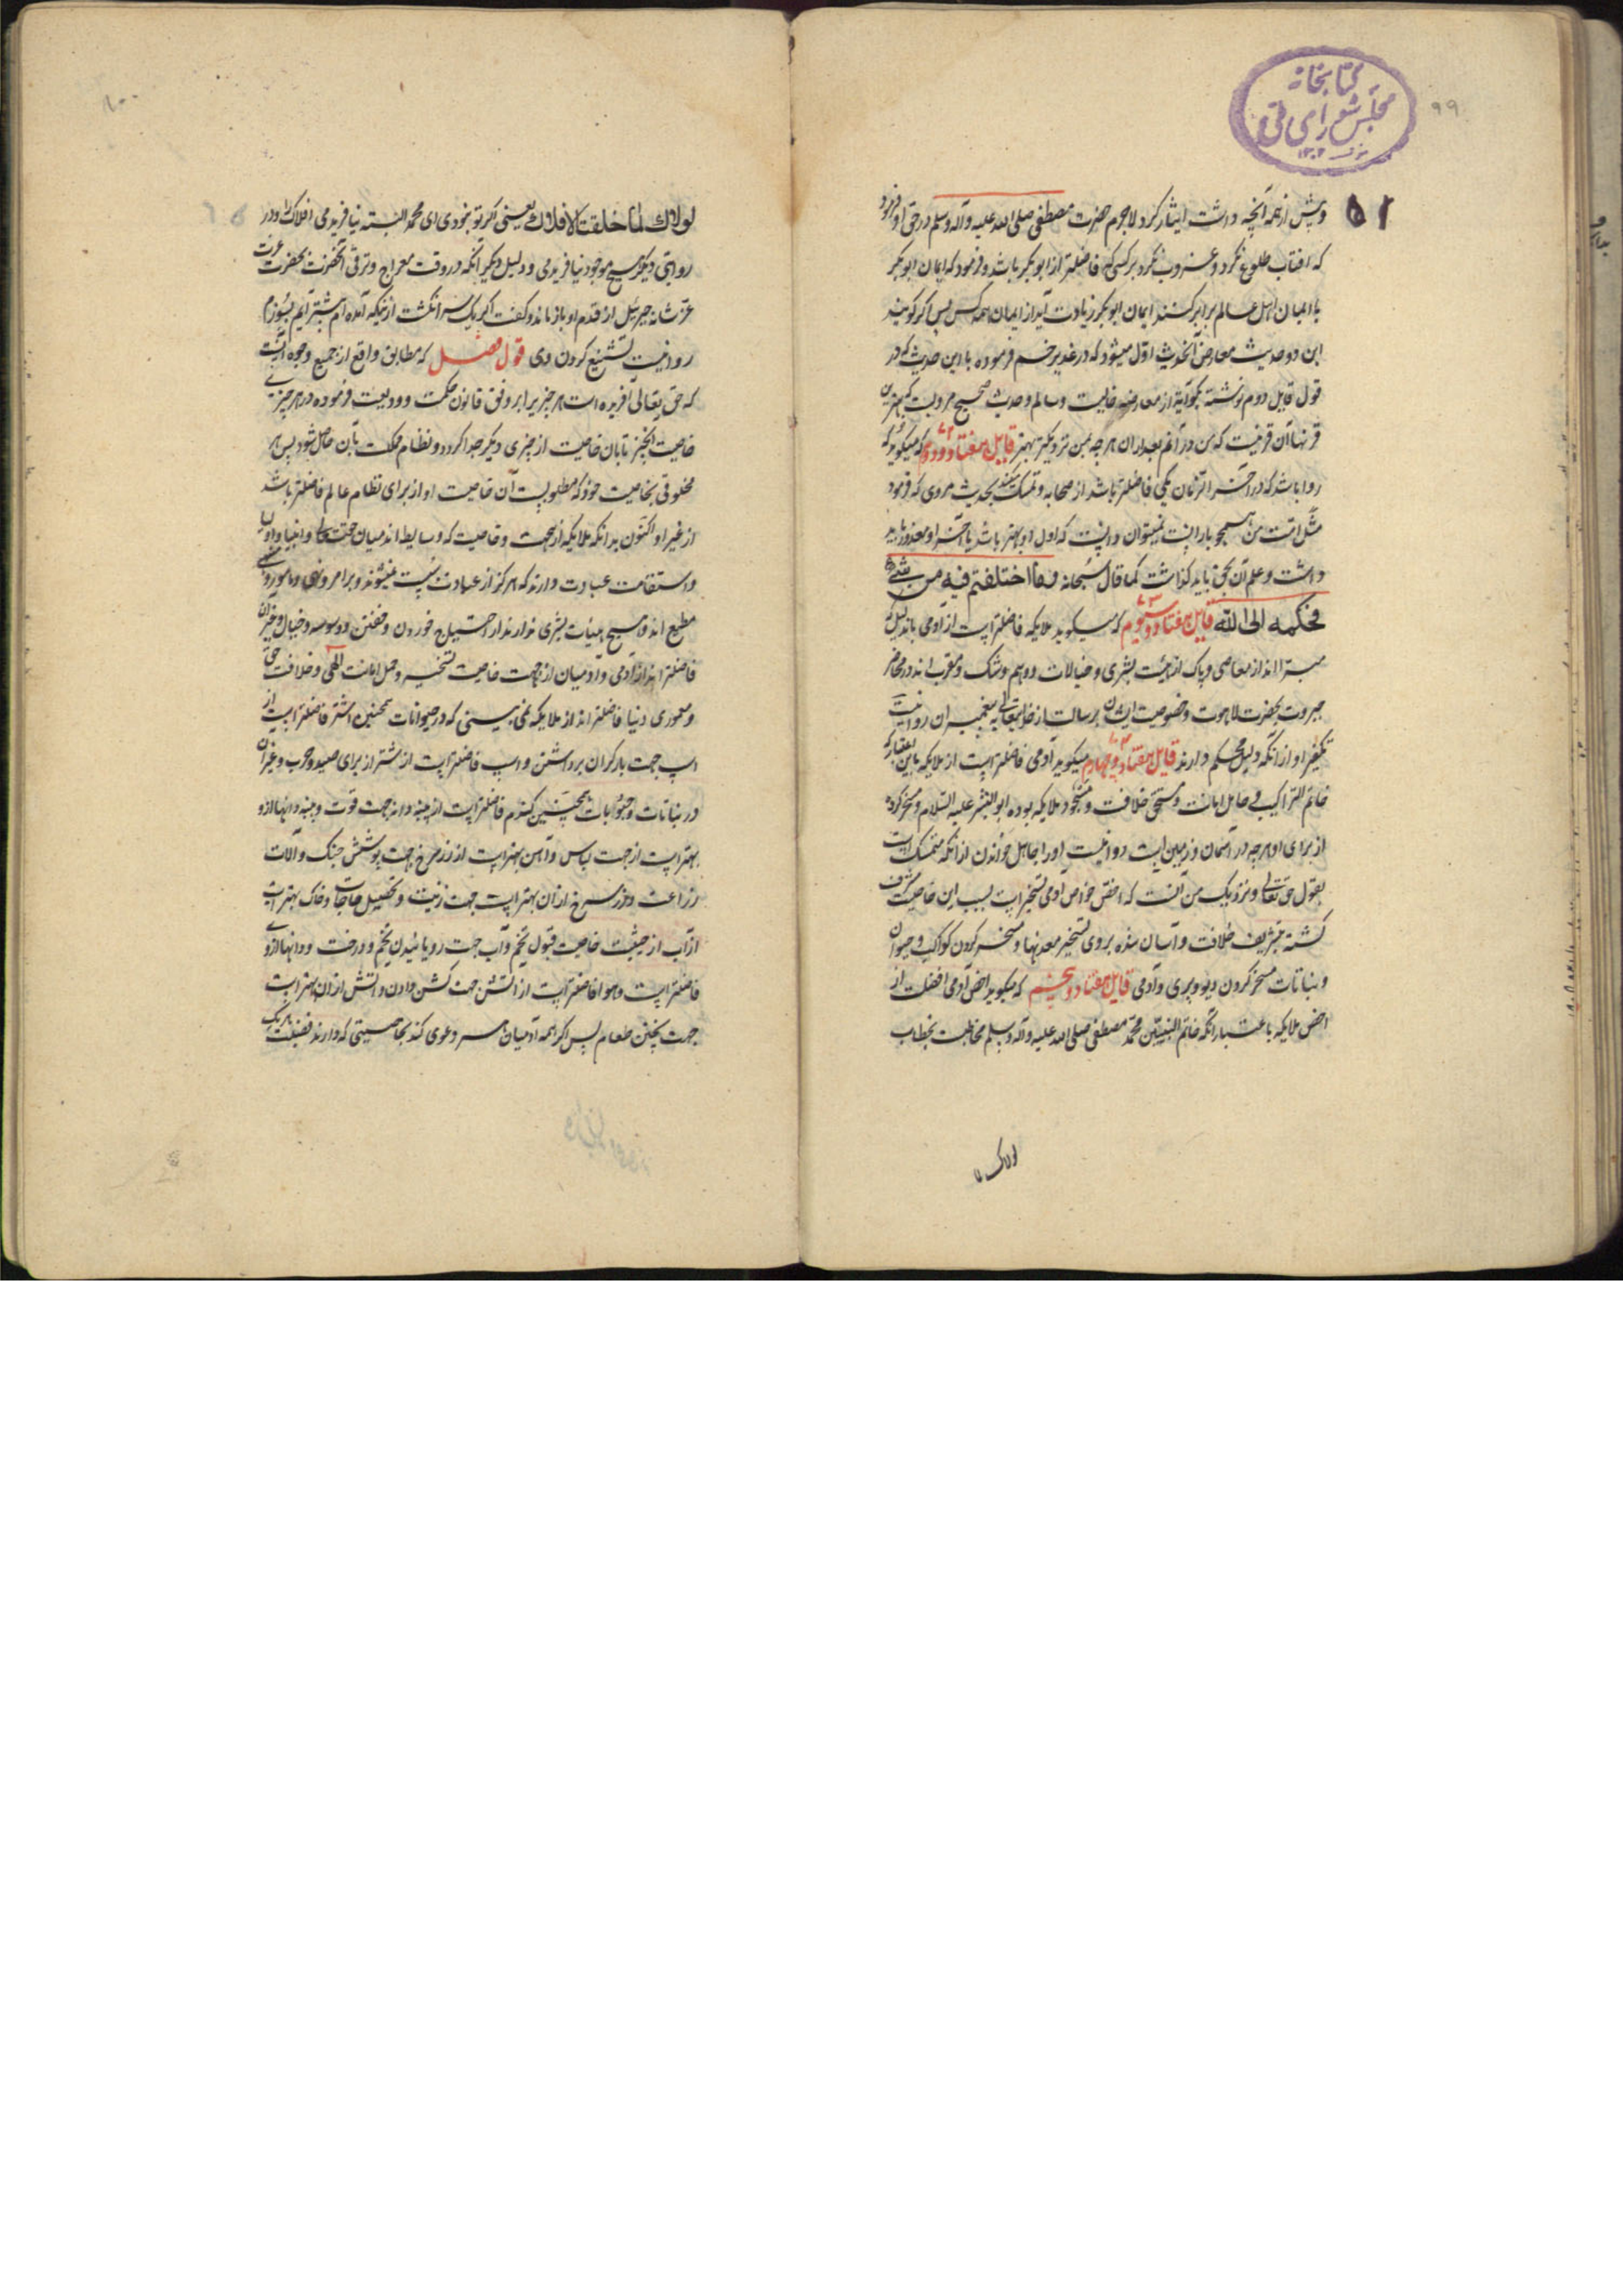 کتابخانه
مجلس شورای ملی
۹۹
۵۱
وپیش از همه آنچه داشت ایثار کرد لاجرم حضرت مصطفی صلی الله علیه وآله وسلم در حق او فرمود
که افتاب طلوع نکرد و غروب نکرد بر کسی که فاضلتر از ابو بکر باشد و فرمود که ایمان ابو بکر
با ایمان اهل عالم برابر کنند ایمان ابو بکر زیادت آید از ایمان همه کس پس اگر کویند
این دو حدیث معارض آنحدیث اول میشود که در غدیر خم فرموده با این حدیث که در
قول قایل دوم نوشته بکو آیة از معارضه خالیست وسالم وحدیث صحیح مرویست که بهترین
قرنها آن قرنیست که من در آنم بعد از ان هر چه بمن نزدیکتر بهتر قایل هفتاد و دوم که میکوید که
روا باشد که در آخر الزمان یکی فاضلتر باشد از صحابه وتمسک کند بحدیث مروی که فرمود
مثل امت من همچو بارانیست نمیتوان دانست که اول او بهتر باشد یا آخر او معذور باید
داشت وعلم آن بحق باید کذاشت کما قال سبحانه وما اختلفتم فیه من شئ
فحکمه الی الله قایل هفتاد و سیوم که میکوید ملایکه فاضلتر است از آدمی باندلیل که
مبرا اند از معاصی وپاک از هیئت بشری وخیالات ووهم وشک ومقرب اند در محاضر
جبروت بحضرت لاهوت وخصوصیت ایشان برسالت از حق تعالی به پیغمبران روا نیست
تکفیر او از انکه دلیل محکم دارند قایل هفتاد و چهارم میکوید آدمی فاضلتر است از ملایکه باین اعتبار که
خاتم التراکیب وحامل امانت ومستحق خلافت ومسجود ملایکه بوده ابو البشر علیه السلام ومسخر کرده
از برای او هر چه در آسمان وزمین است روا نیست او را جاهل خواندن از انکه متمسک است
بقول حق تعالی ونزدیک من آنست که اخص خواص آدمی تسخیر است بسبب این خاصیت مشرف
کشته بتشریف خلافت وآسان شده بر وی تسخیر معدنها ومسخر کردن کواکب وحیوان
ونباتات مسخر کردن دیو وپری وآدمی قایل هفتاد و پنجم که میکوید اخص آدمی افضلست از
اخص ملایکه باعتبار انکه خاتم النبیین محمد مصطفی صلی الله علیه وآله وسلم مخاطبست بخطاب
لولاک
۱۰۰
لولاك لما خلقت الافلاك یعنی اکر تو نبودی ای محمد البته نیافریدمی افلاک را ودر
روایتی دیکر هیچ موجود نیافریدمی ودلیل دیکر آنکه در وقت معراج وترقی آنحضرت بحضرت عزت
عز شانه جبرئیل از قدم او باز ماند وکفت اکر یک سر انکشت از نیکه آمده ام پیشتر آیم بسوزم
روا نیست تشنیع کردن وی قول فصل که مطابق واقع از جمیع وجوه آنست
که حق تعالی آفریده است هر چیز را بر وفق قانون حکمت وودیعت فرموده در هر چیزی
خاصیت آنچیز تا بان خاصیت از چیزی دیکر جدا کردد ونظام مملکت بآن حاصل شود پس هر
مخلوقی بخاصیت خود که مطلوبست آن خاصیت او از برای نظام عالم فاضلتر باشد
از غیر او اکنون بدانکه ملایکه از جهت وخاصیت که وسایط اند میان حق تعالی وانبیا واولیا
واستقامت عبادت دارند که هرکز از عبادت سست نمیشوند وبر امر ونهی ومامور
مطیع اند وهیچ هیئات بشری ندارند از احتیاج خوردن وخفتن ووسوسه وخیال وغیر آن
فاضلتر اند از آدمی وآدمیان از جهت خاصیت تسخیر وحمل امانت الهی وخلافت حق
ومعموری دنیا فاضلتر اند از ملایکه نمی بینی که در حیوانات همچنین اشتر فاضلتر است از
اسب جهت بار کران برداشتن واسب فاضلتر است از شتر از برای صید وحرب وغیر آن
در نباتات وحبوبات همچنین کندم فاضلتر است از پنبه دانه جهت قوت وپنبه دانها از و
بهتر است از جهت لباس وآهن بهتر است از زر سرخ جهت پوشش جنک وآلات
زراعت وزر سرخ از آن بهتر است جهت زینت وتحصیل حاجات وخاک بهتر است
از آب از حیثیت خاصیت قبول تخم وآب جهت رویانیدن تخم ودرخت ودانها از وی
فاضلتر است وهوا فاضلتر است از آتش جهت کشن دادن وآتش از آن بهتر است
جهت پختن طعام پس اکر همه آدمیان هر سر دعوی کند بخاصیتی که دارند فضیلت هر یک